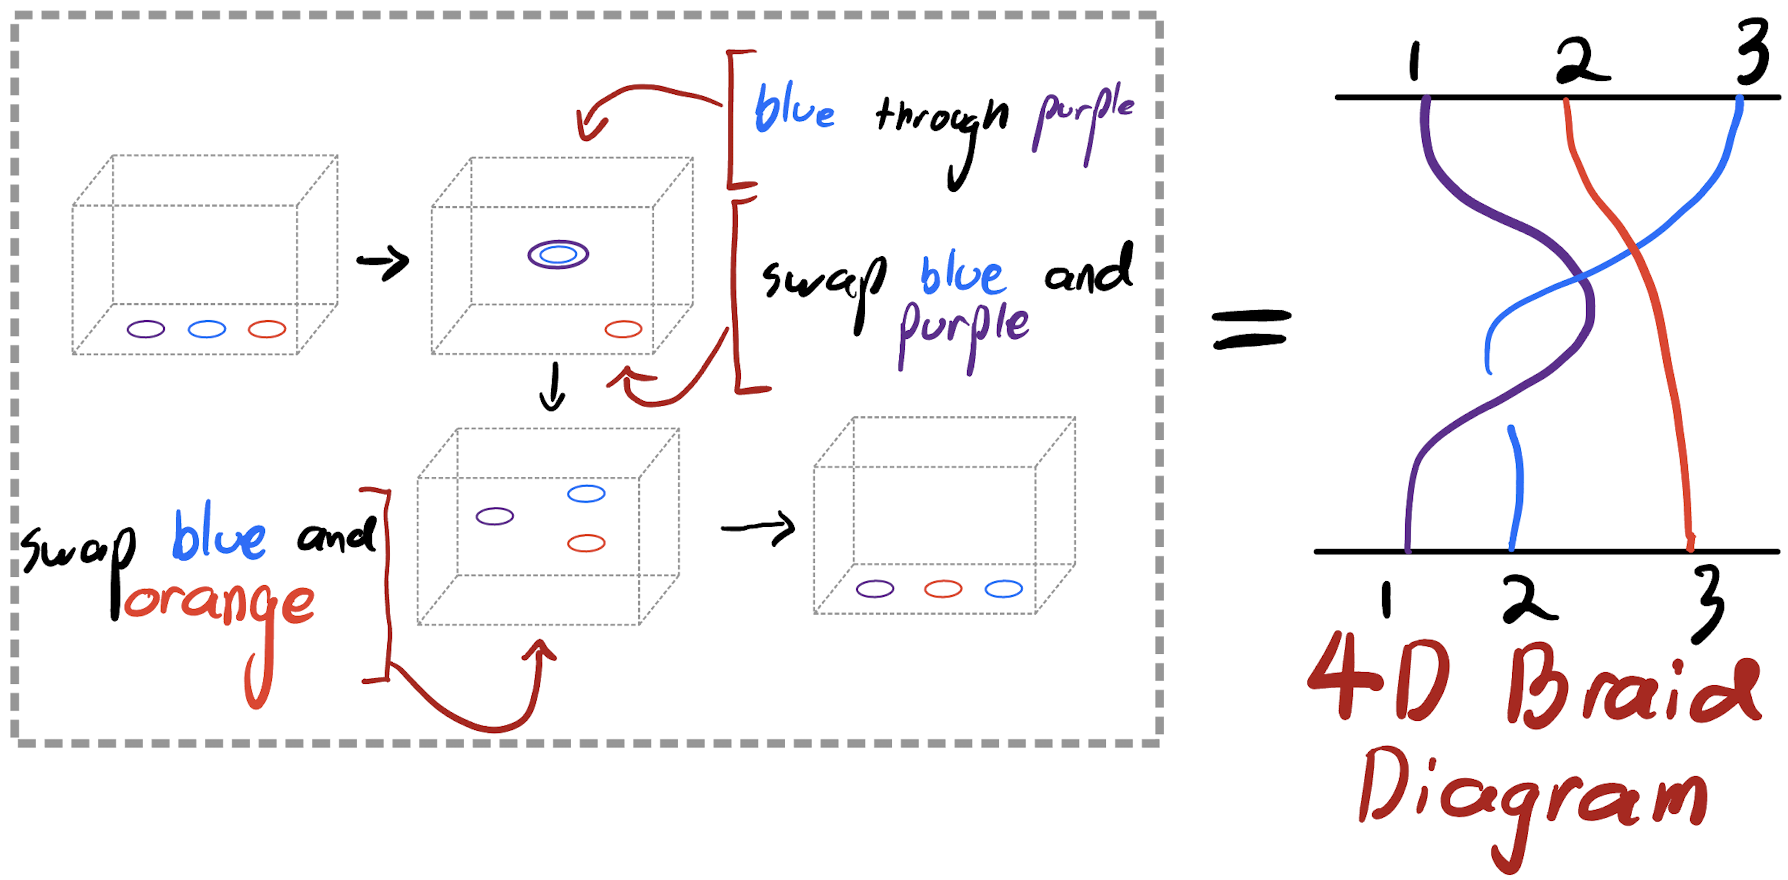 blue through purple
swap blue and
purple
swap blue and
orange
=
1 2 3
1 2 3
4D Braid
Diagram